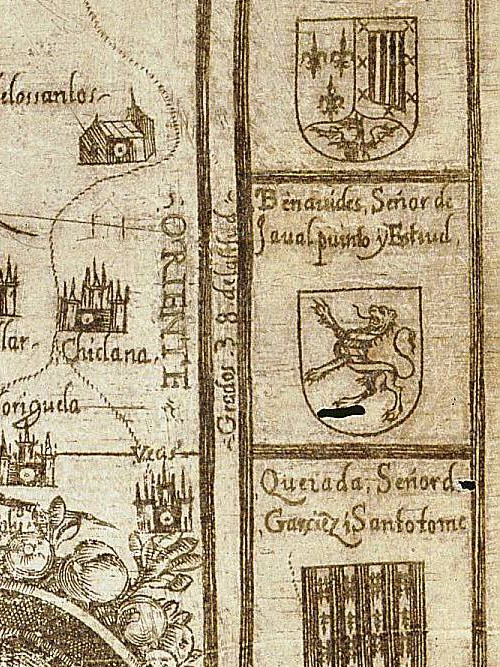 delossantos
ORIENTE
Chiclana
lar.
origuela
veas
Grados 38 de latitud
Benauides, Señor de
Jaualquinto y Estiud,
Quejada, Señord
Garciez i Santotome